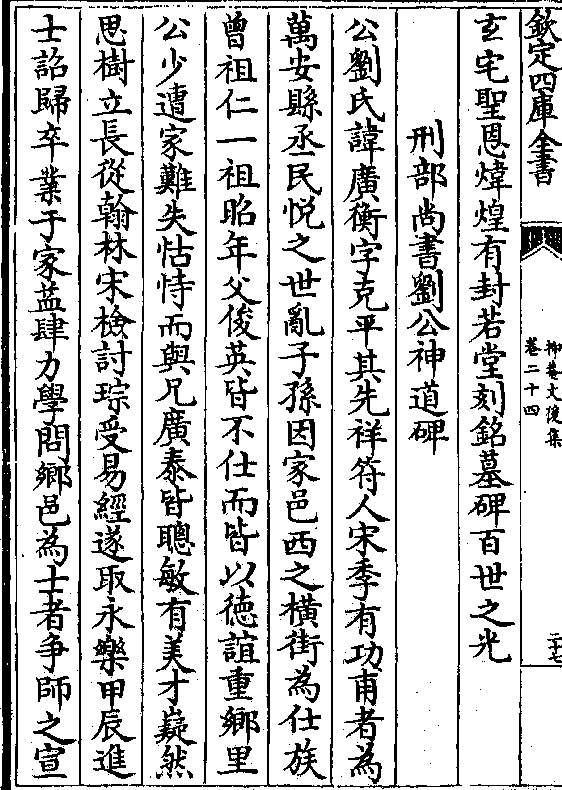 欽定四庫全書
抑菴文後集
卷二十四
二十七
玄宅聖恩煒煌有封若堂刻銘墓碑百世之光
刑部尚書劉公神道碑
公劉氏諱廣衡字克平其先祥符人宋季有功甫者為
萬安縣丞民悅之世亂子孫因家邑西之橫街為仕族
曾祖仁一祖昭年父俊英皆不仕而皆以德誼重鄉里
公少遭家難失怙恃而與兄廣泰皆聰敏有美才嶷然
思樹立長從翰林宋檢討琮受易經遂取永樂甲辰進
士詔歸卒業于家益肆力學問鄉邑為士者争師之宣